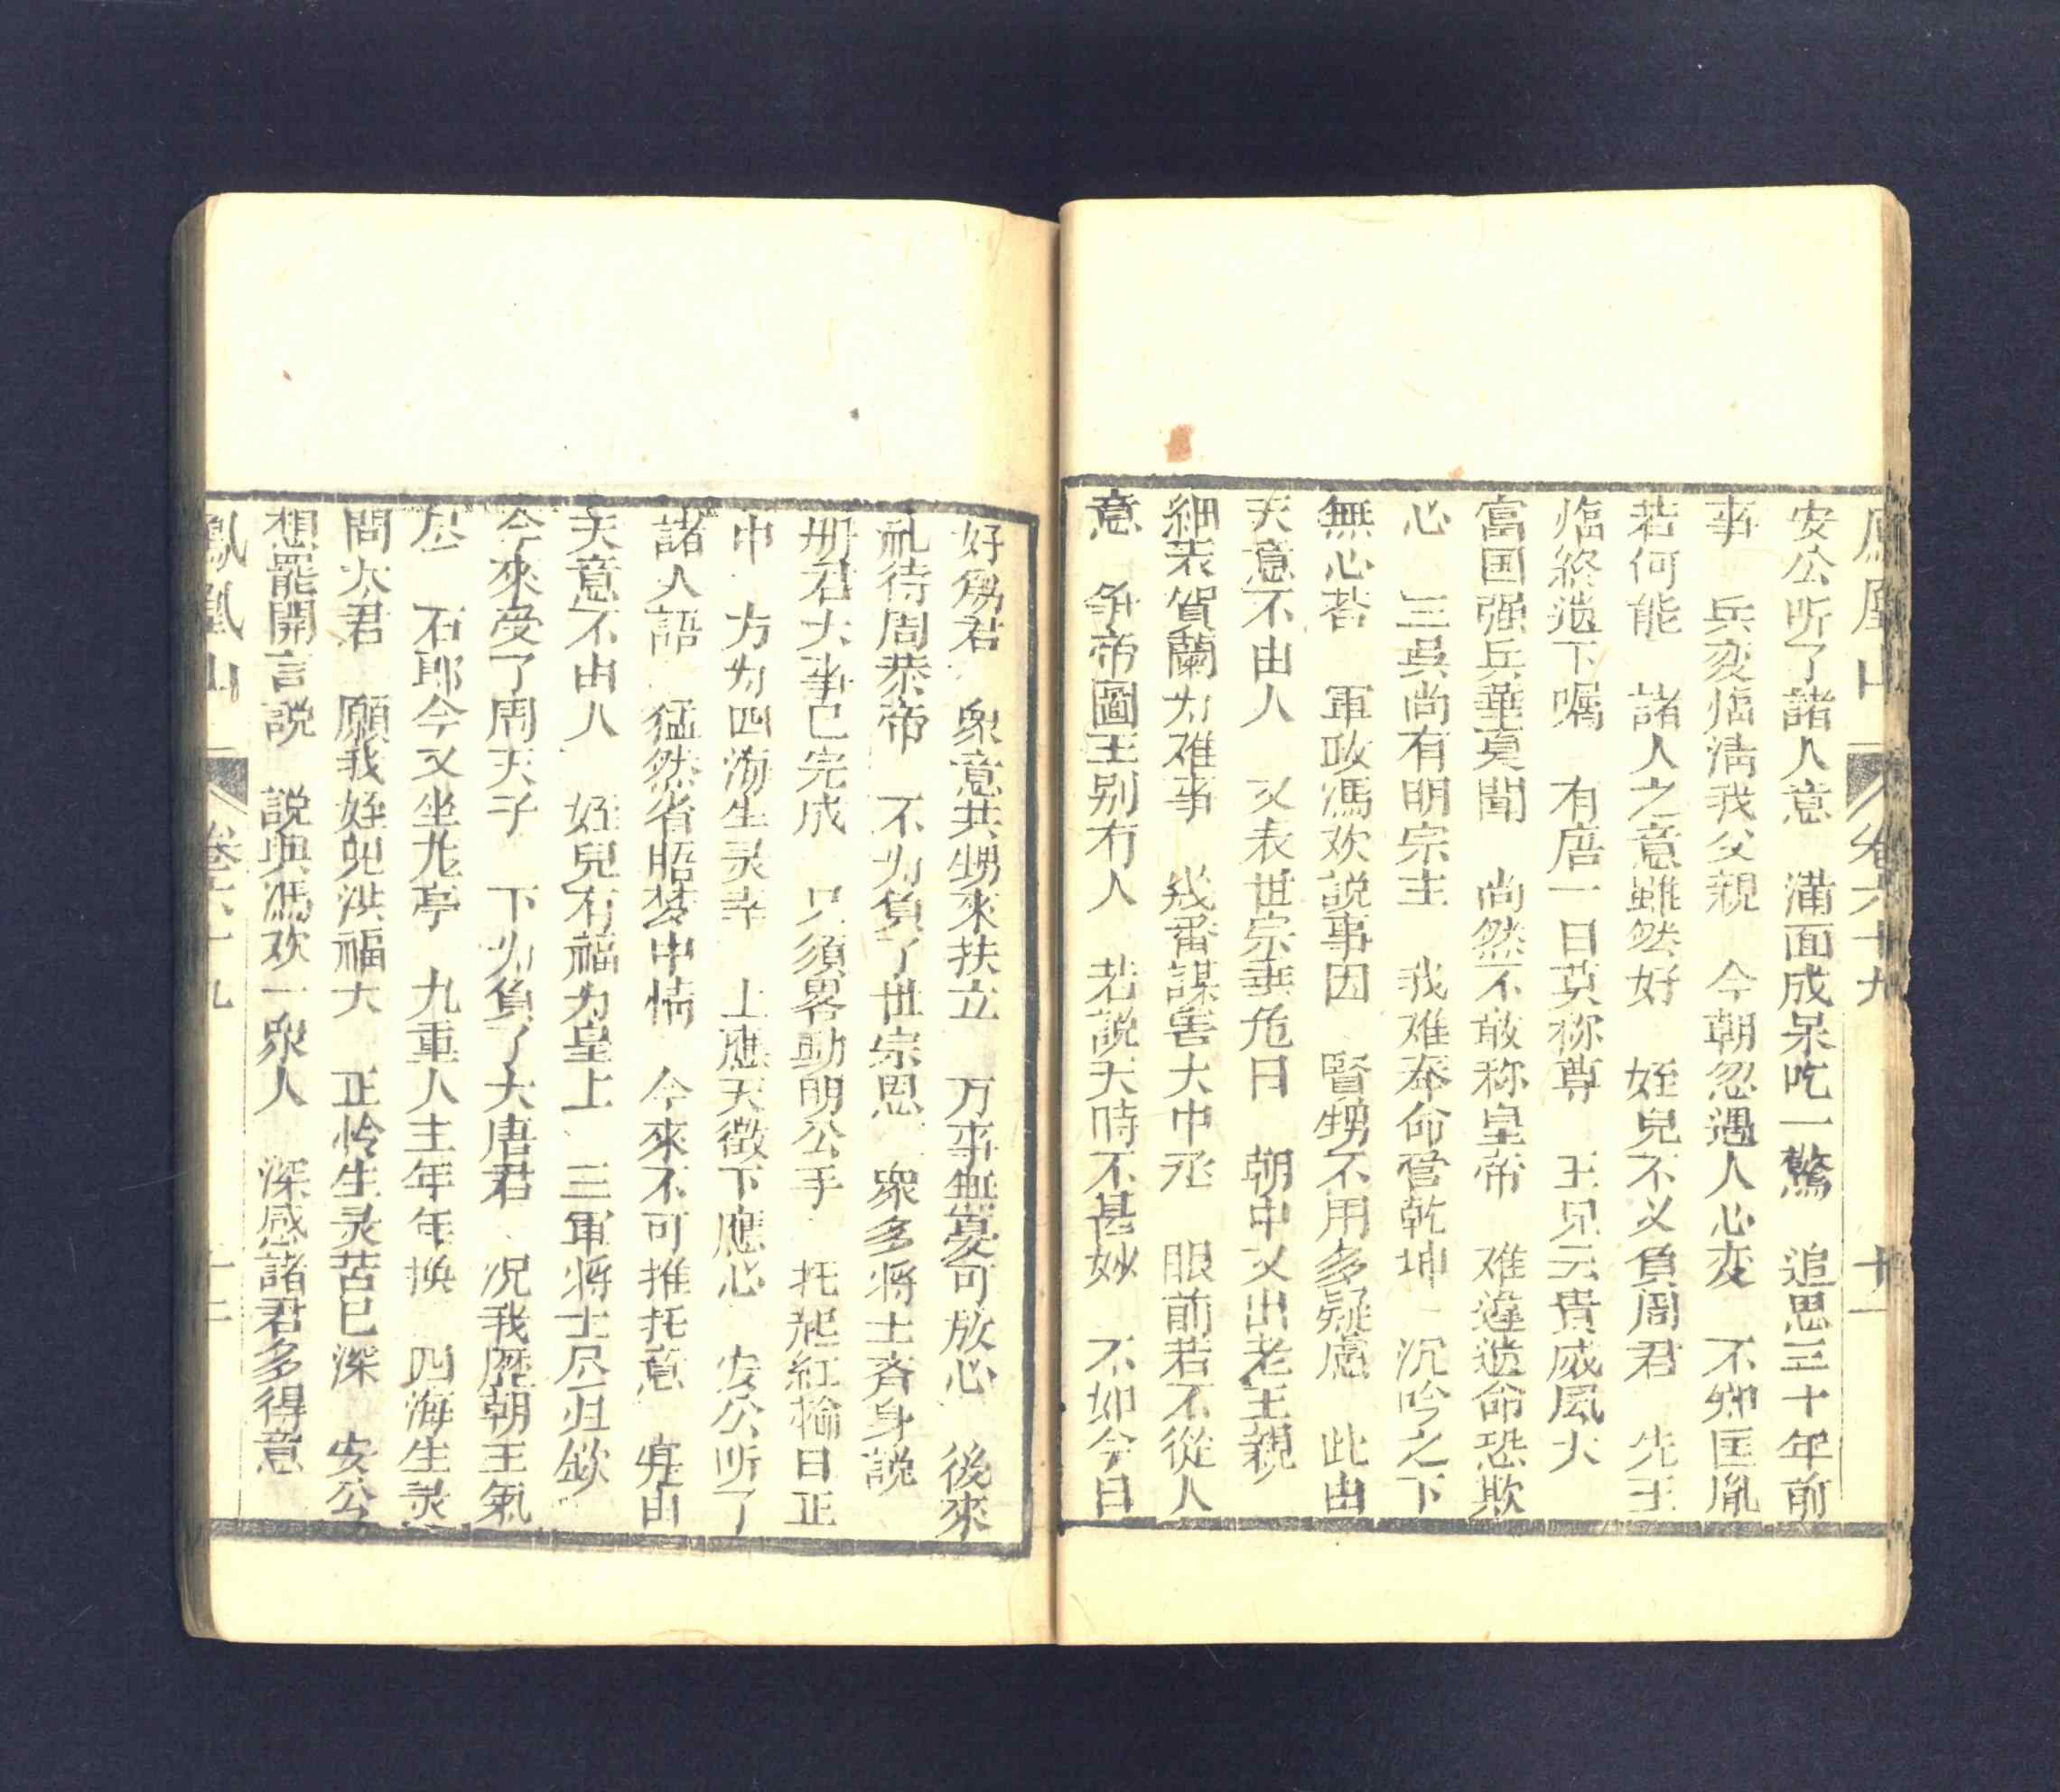 鳳凰山 卷六十九 十一
安公听了諸人意 滿面成呆吃一驚 追思三十年前
事 兵変临淸我父親 今朝忽遇人心変 不
若何能 諸人之意雖然好 姪兒不义負周君 先王
临終遗下嘱 有唐一日莫称尊 王兄云貴威風大
富国强兵華莫聞 尚然不敢称皇帝 难違遗命恐欺
心 三吳尚有明宗主 我难奉命管乾坤 沉吟之下
無心荅 軍政馮欢説事因 賢甥不用多疑慮 此由
天意不由人 又表世宗垂危日 朝中又出老王親
細表賀蘭为难事 幾番謀害大中丞 眼前若不從人
意 争帝圖王别冇人 若説天時不甚妙 不如今日
好為君 衆意共甥來扶立 万事無憂可放心 後來
礼待周恭帝 不为負了世宗恩 衆多將士斉身説
册君大事已完成 只須畧動明公手 托起紅輪日正
中 方为四海生灵幸 上應天徵下應心 安公听了
諸人語 猛然省晤梦中情 今來不可推托意 寔由
天意不由人 姪兒有福为皇上 三軍將士尽归欽
今來受了周天子 下为負了大唐君 况我歴朝王氣
尽 石郎今又坐龙亭 九重人主年年换 四海生灵
問太君 願我姪兒洪福大 正怜生灵苦已深 安公
想罷開言説 説與馮欢一衆人 深感諸君多得意
鳳凰山 卷六十九 十二